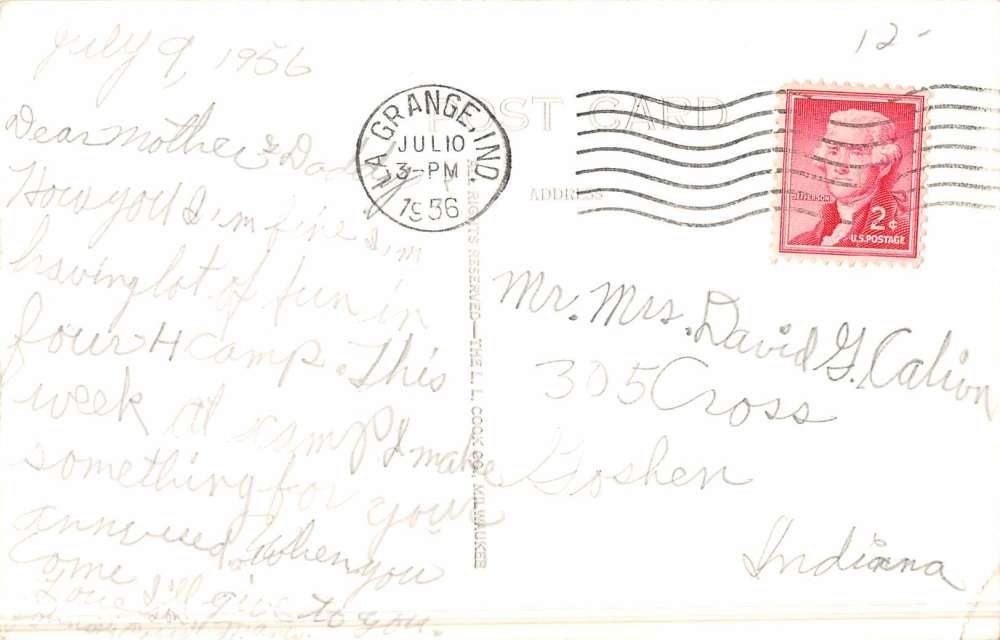 July 9, 1956
12-
Dear Mother & Daddy
How you I'm fine I'm
having lot of fun in
four H camp. This
week at camp I make
something for your
annuved. When you
come I'll give to you.
Love
LA GRANGE, IND.
JUL 10
3-PM
1956
POST CARD
ADDRESS
JEFFERSON
2¢
U.S. POSTAGE
ALL RIGHTS RESERVED—THE L. L. COOK CO., MILWAUKEE
Mr. Mrs. David G. Calivon
305 Cross
Goshen
Indiana